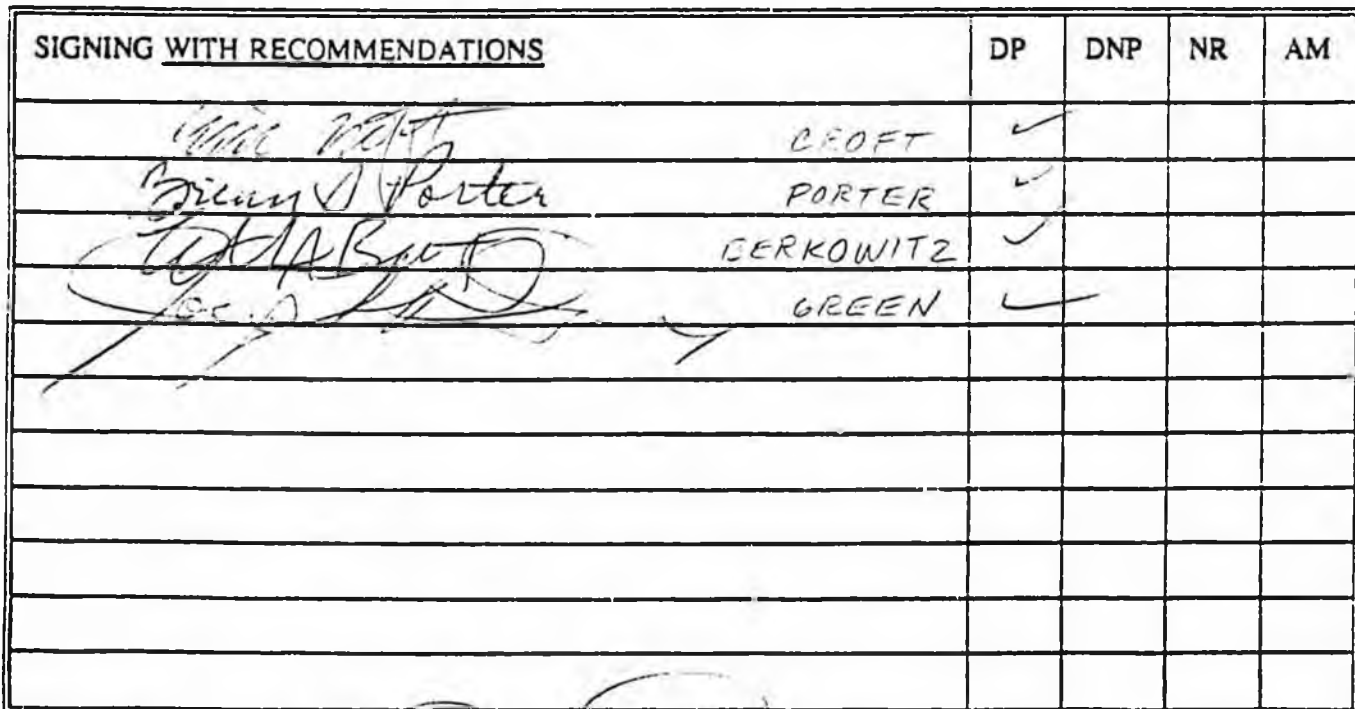 SIGNING WITH RECOMMENDATIONS DP DNP NR AM
CROFT ✓
Brian D Porter PORTER ✓
BERKOWITZ ✓
GREEN ✓